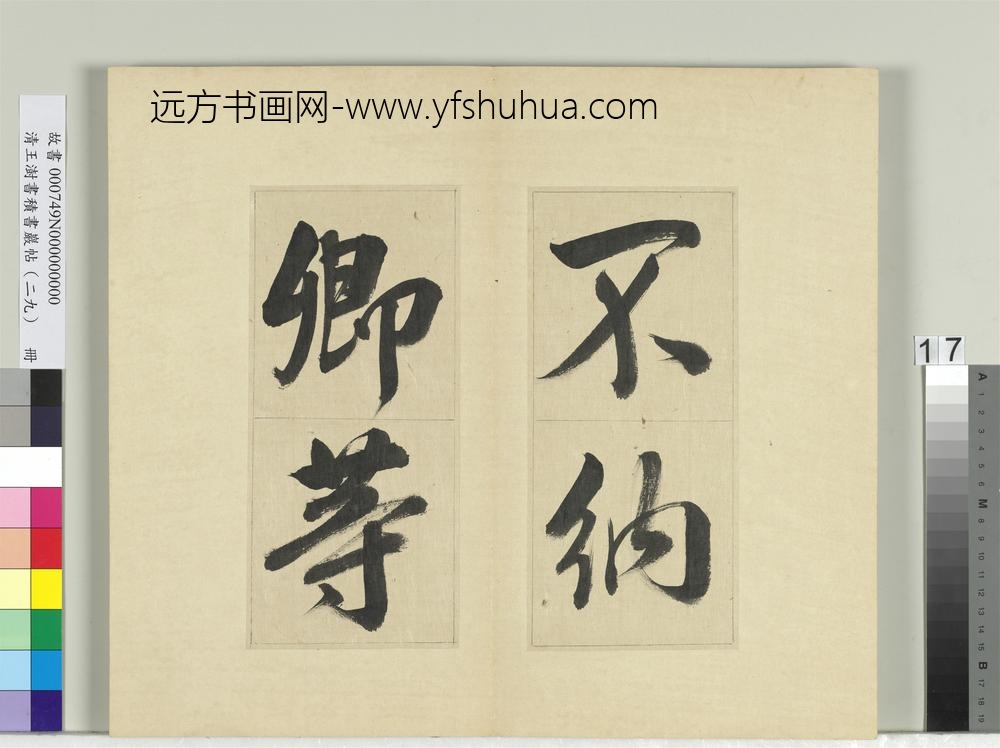 远方书画网-www.yfshuhua.com
故書 000749N000000000
清王澍書積書巖帖（二九） 冊
不納
卿等
17
A
1
2
3
4
5
6
M
8
9
10
11
12
13
14
15
B
17
18
19